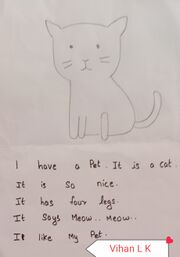 I have a Pet. It is a cat.
It is so nice.
It has four legs.
It says Meow.. meow..
It like My Pet.
Vihan L K